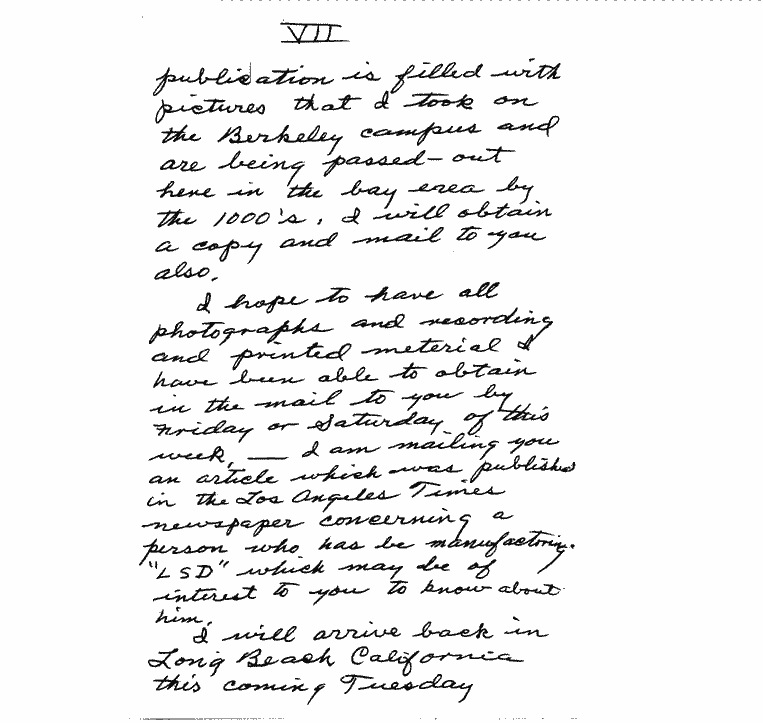 VII
publication is filled with
pictures that I took on
the Berkeley campus and
are being passed-out
here in the bay erea by
the 1000's, I will obtain
a copy and mail to you
also.
I hope to have all
photographs and recording
and printed meterial I
have been able to obtain
in the mail to you by
Friday or Saturday of this
week, — I am mailing you
an article which was published
in the Los Angeles Times
newspaper concerning a
person who has be manufactoring
"LSD" which may be of
interest to you to know about
him.
I will arrive back in
Long Beach California
this coming Tuesday